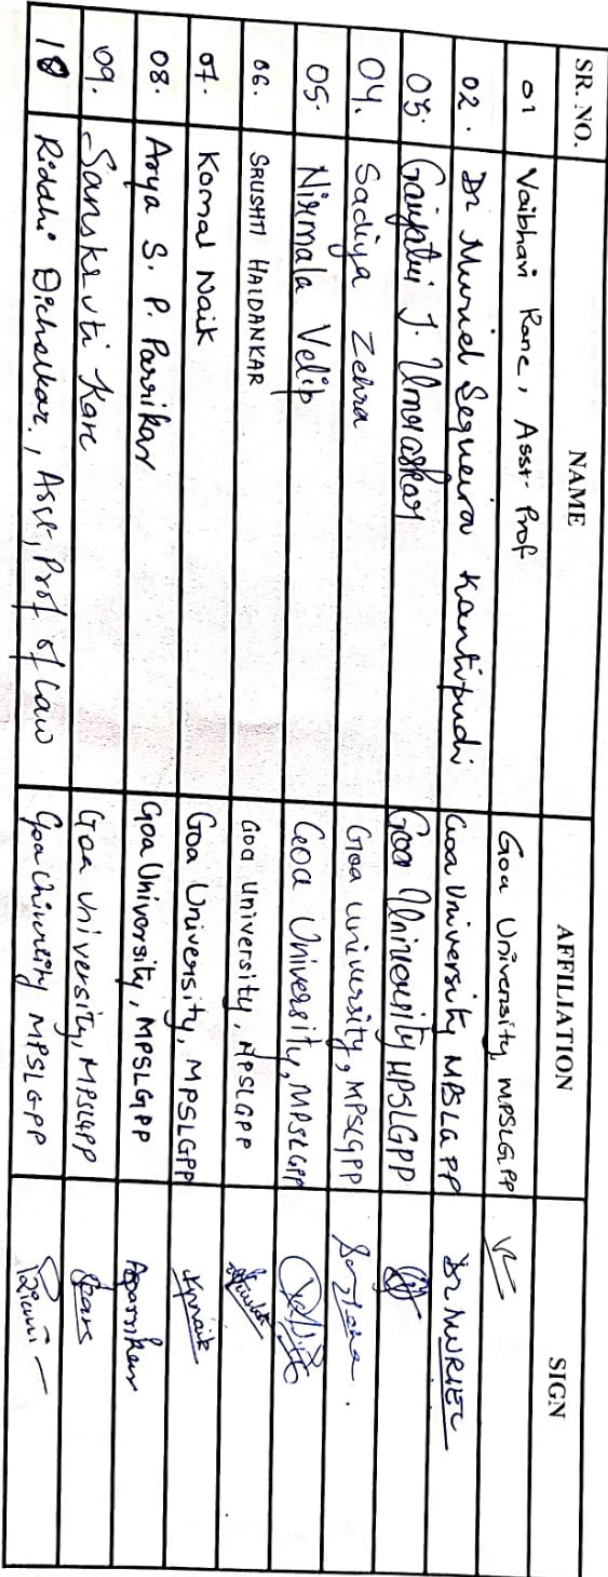 SR. NO. NAME AFFILIATION SIGN
01 Vaibhavi Rane, Asst. Prof Goa University, MPSLGPP
02. Dr Muriel Sequeira Kantipudi Goa University MPSLGPP Dr MURIEL
03. Gayatri J. Umraskar Goa University MPSLGPP
04. Sadiya Zehra Goa university, MPSLGPP
05. Nirmala Velip Goa University, MPSLGPP
06. SRUSHTI HALDANKAR Goa University, MPSLGPP
07. Komal Naik Goa University, MPSLGPP Kpnaik
08. Arya S. P. Parrikar Goa University, MPSLGPP Asparrikar
09. Sanskruti Kare Goa University, MPSLGPP
10 Riddhi Dichalkar, Asst, Prof of Law Goa University MPSLGPP